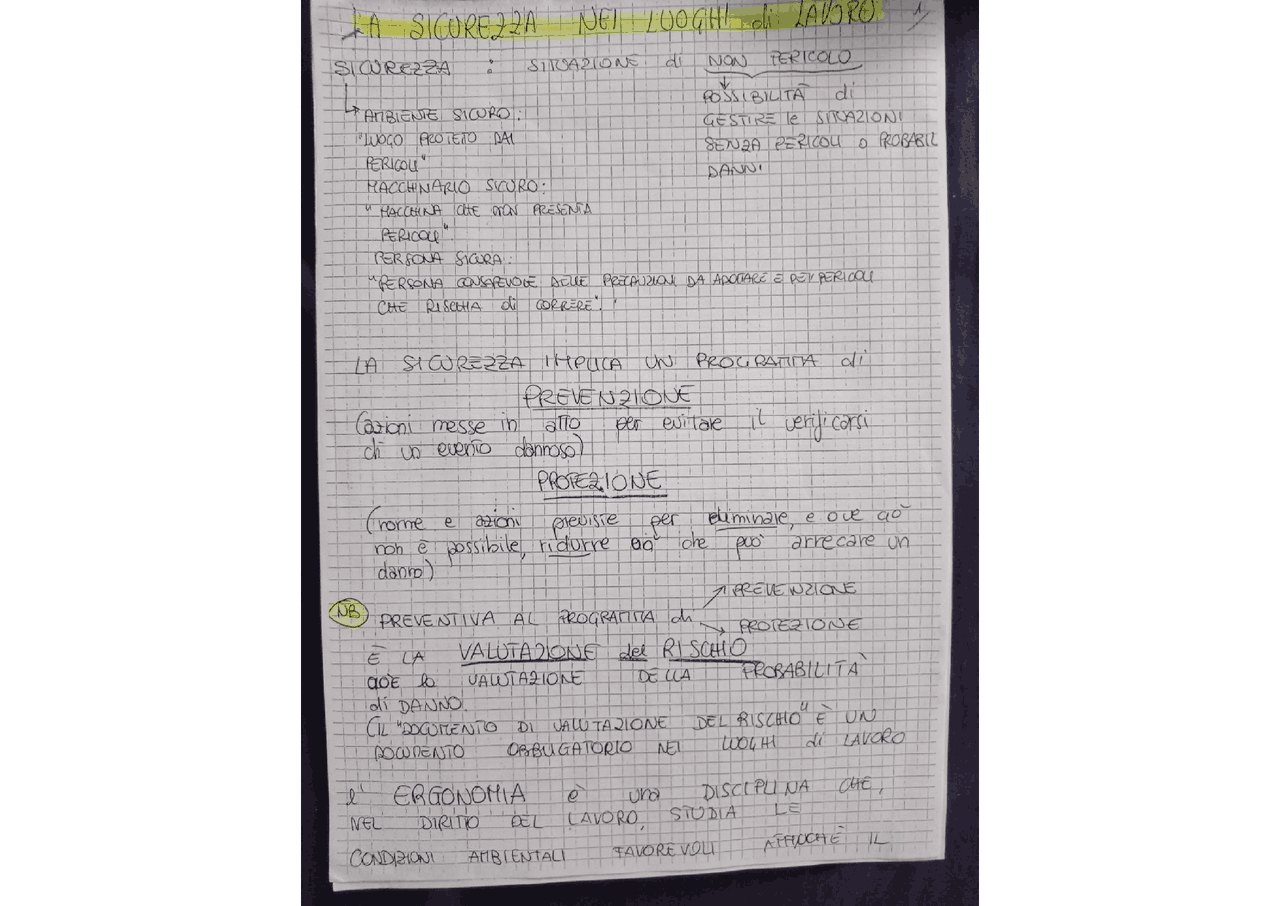 LA SICUREZZA NEI LUOGHI di LAVORO 1
SICUREZZA : SITUAZIONE di NON PERICOLO
POSSIBILITÀ di
GESTIRE le SITUAZIONI
SENZA PERICOLI O PROBABIL
DANNI
AMBIENTE SICURO:
"LUOGO PROTETTO DAI
PERICOLI"
MACCHINARIO SICURO:
"MACCHINA CHE NON PRESENTA
PERICOLI"
PERSONA SICURA:
"PERSONA CONSAPEVOLE DELLE PRECAUZIONI DA ADOTTARE E DEI PERICOLI
CHE RISCHIA di CORRERE".
LA SICUREZZA IMPLICA UN PROGRAMMA di
PREVENZIONE
(azioni messe in atto per evitare il verificarsi
di un evento dannoso)
PROTEZIONE
(norme e azioni previste per eliminare, e ove ciò
non è possibile, ridurre ciò che può arrecare un
danno)
NB PREVENTIVA AL PROGRAMMA di PREVENZIONE
PROTEZIONE
È LA VALUTAZIONE del RISCHIO
cioè la VALUTAZIONE DELLA PROBABILITÀ
di DANNO.
(IL "DOCUMENTO DI VALUTAZIONE DEL RISCHIO" È UN
DOCUMENTO OBBLIGATORIO NEI LUOGHI di LAVORO
l' ERGONOMIA è una DISCIPLINA CHE,
NEL DIRITTO DEL LAVORO, STUDIA LE
CONDIZIONI AMBIENTALI FAVOREVOLI AFFINCHÈ IL